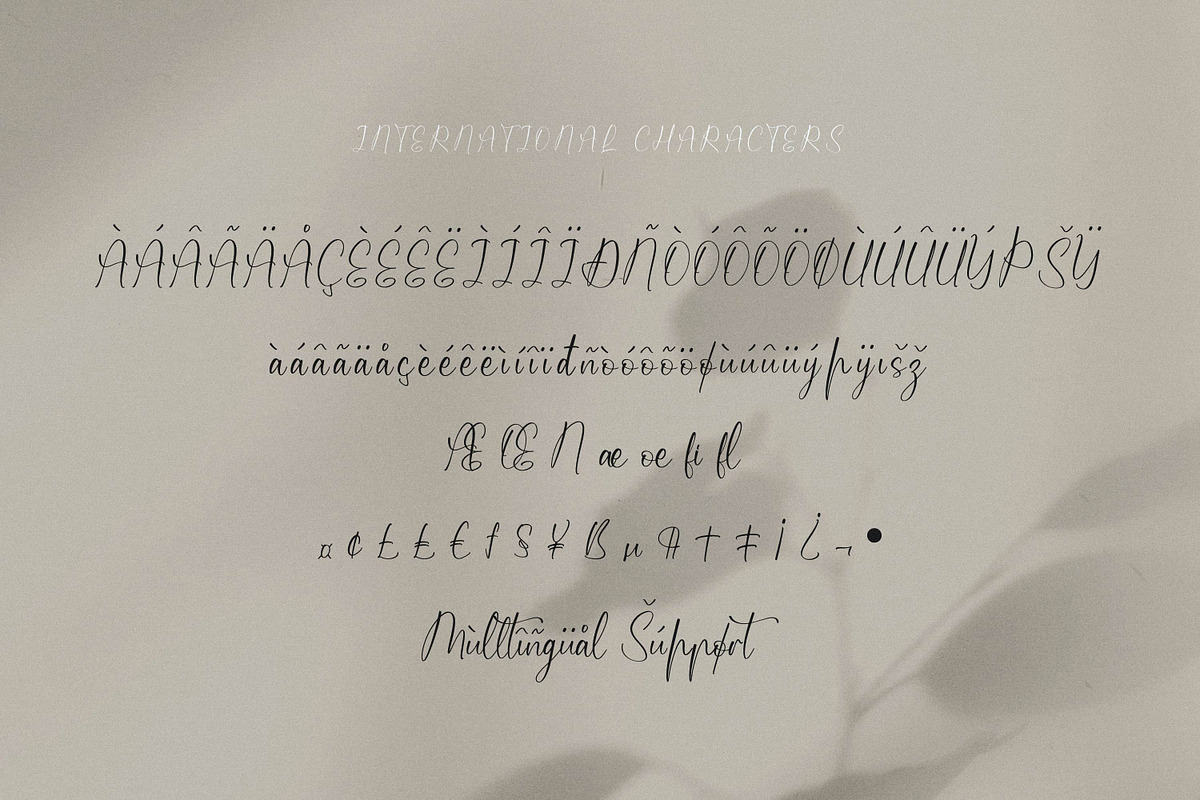 INTERNATIONAL CHARACTERS
ÀÁÂÃÄÅÇÈÉÊËÌÍÎÏÐÑÒÓÔÕÖØÙÚÛÜÝÞŠŸ
àáâãäåçèéêëìíîïđñòóôõöøùúûüýþÿışž
Æ Œ Л æ œ fi fl
¤ ¢ £ ₤ € ƒ § ¥ ß µ ¶ † ‡ ¡ ¿ ¬ •
Mùltîñgüål Šúppørt